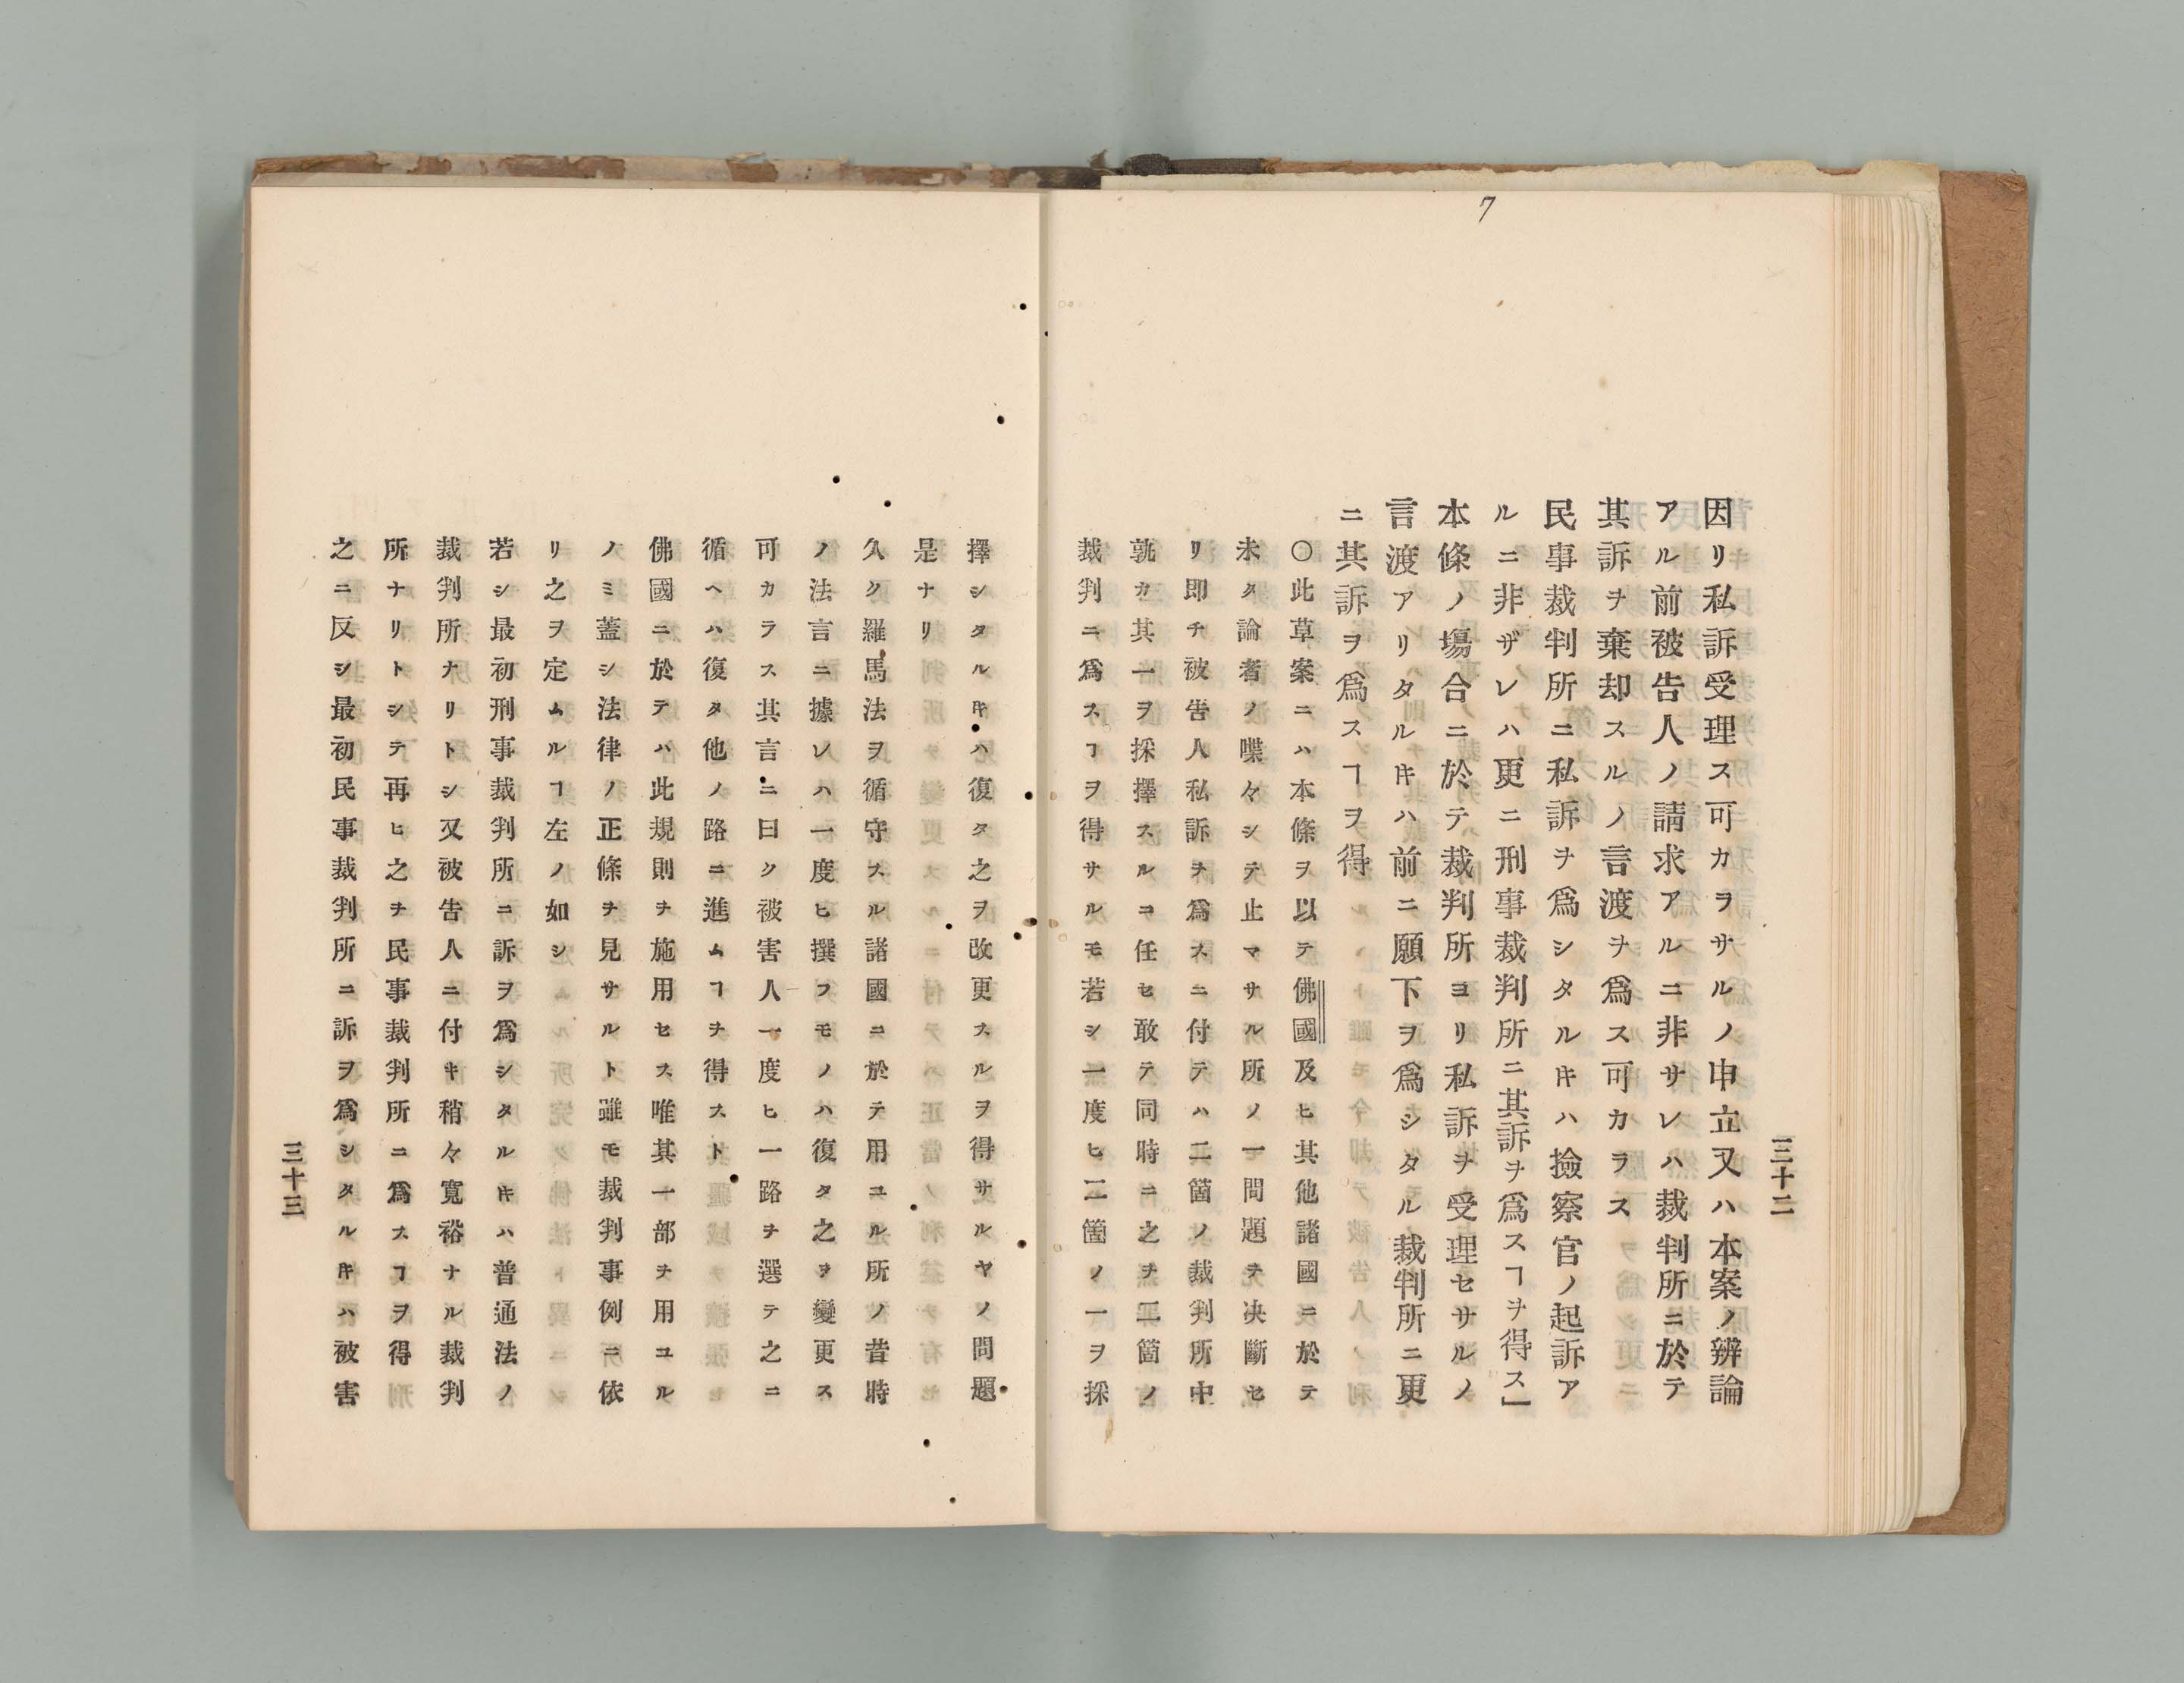 7
三十二
因リ私訴受理ス可カヲサルノ申立又ハ本案ノ辨論
アル前被告人ノ請求アルニ非サレハ裁判所ニ於テ
其訴ヲ棄却スルノ言渡ヲ爲ス可カラス
民事裁判所ニ私訴ヲ爲シタルキハ撿察官ノ起訴ア
ルニ非ザレハ更ニ刑事裁判所ニ其訴ヲ爲スヿヲ得ス」
本條ノ塲合ニ於テ裁判所ヨリ私訴ヲ受理セサルノ
言渡アリタルキハ前ニ願下ヲ爲シタル裁判所ニ更
ニ其訴ヲ爲スヿヲ得
〇此草案ニハ本條ヲ以テ佛國及ヒ其他諸國ニ於テ
未タ論者ノ喋々シテ止マサル所ノ一問題ヲ决斷セ
リ即チ被告人私訴ヲ爲スニ付テハ二箇ノ裁判所中
孰カ其一ヲ採擇スルコ任セ敢テ同時ニ之ヲ二箇ノ
裁判ニ爲スヿヲ得サルモ若シ一度ヒ二箇ノ一ヲ採
擇シタルキハ復タ之ヲ改更スルヲ得サルヤノ問題
是ナリ
久ク羅馬法ヲ循守スル諸國ニ於テ用ユル所ノ昔時
ノ法言ニ據レハ一度ヒ撰フモノハ復タ之ヲ變更ス
可カラス其言ニ曰ク被害人一度ヒ一路ヲ選テ之ニ
循ヘハ復タ他ノ路ニ進ムヿヲ得スト
佛國ニ於テハ此規則ヲ施用セス唯其一部ヲ用ユル
ノミ蓋シ法律ノ正條ヲ見サルト雖モ裁判事例ニ依
リ之ヲ定ムルヿ左ノ如シ
若シ最初刑事裁判所ニ訴ヲ爲シタルキハ普通法ノ
裁判所ナリトシ又被告人ニ付キ稍々寛裕ナル裁判
所ナリトシテ再ヒ之ヲ民事裁判所ニ爲スヿヲ得
之ニ反シ最初民事裁判所ニ訴ヲ爲シタルキハ被害
三十三